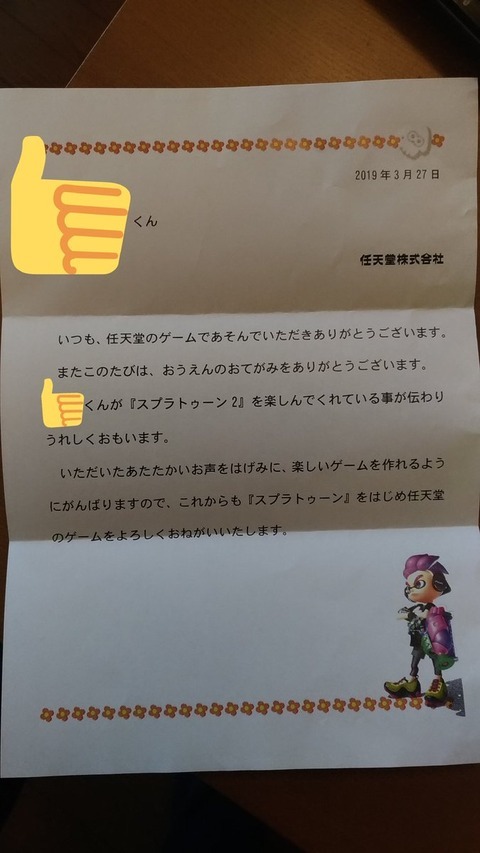 2019年3月27日
くん
任天堂株式会社
いつも、任天堂のゲームであそんでいただきありがとうございます。
またこのたびは、おうえんのおてがみをありがとうございます。
くんが『スプラトゥーン2』を楽しんでくれている事が伝わり
うれしくおもいます。
いただいたあたたかいお声をはげみに、楽しいゲームを作れるよう
にがんばりますので、これからも『スプラトゥーン』をはじめ任天堂
のゲームをよろしくおねがいいたします。